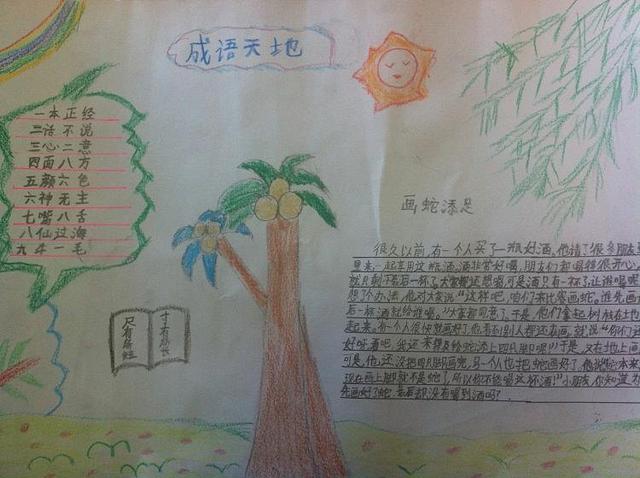 成语天地
一本正经
二话不说
三心二意
四面八方
五颜六色
六神无主
七嘴八舌
八仙过海
九牛一毛
尺有所短
寸有所长
画蛇添足
很久以前,有一个人买了一瓶好酒,他请了很多朋友
里来,一起享用这瓶酒,酒非常好喝,朋友们都喝得很开心,
就只剩下最后一杯了,大家都还想喝可是酒只有一杯了,让谁喝呢
想了个办法,他对大家说:"这样吧,咱们来比赛画蛇。谁先画
后一杯酒就给谁喝。"大家都同意了,于是,他们拿起树枝在土地
起来。有一个人很快就画好了,他看到别人都还在画,就说:"你们还
好呀
可是,他还没把四只脚画完,另一个人也把蛇画好了,他说:"蛇本来
现在画上脚就不是蛇了,所以你不能喝这杯酒!"小朋友,你知道
先画好了蛇,最后却没有喝到酒吗?